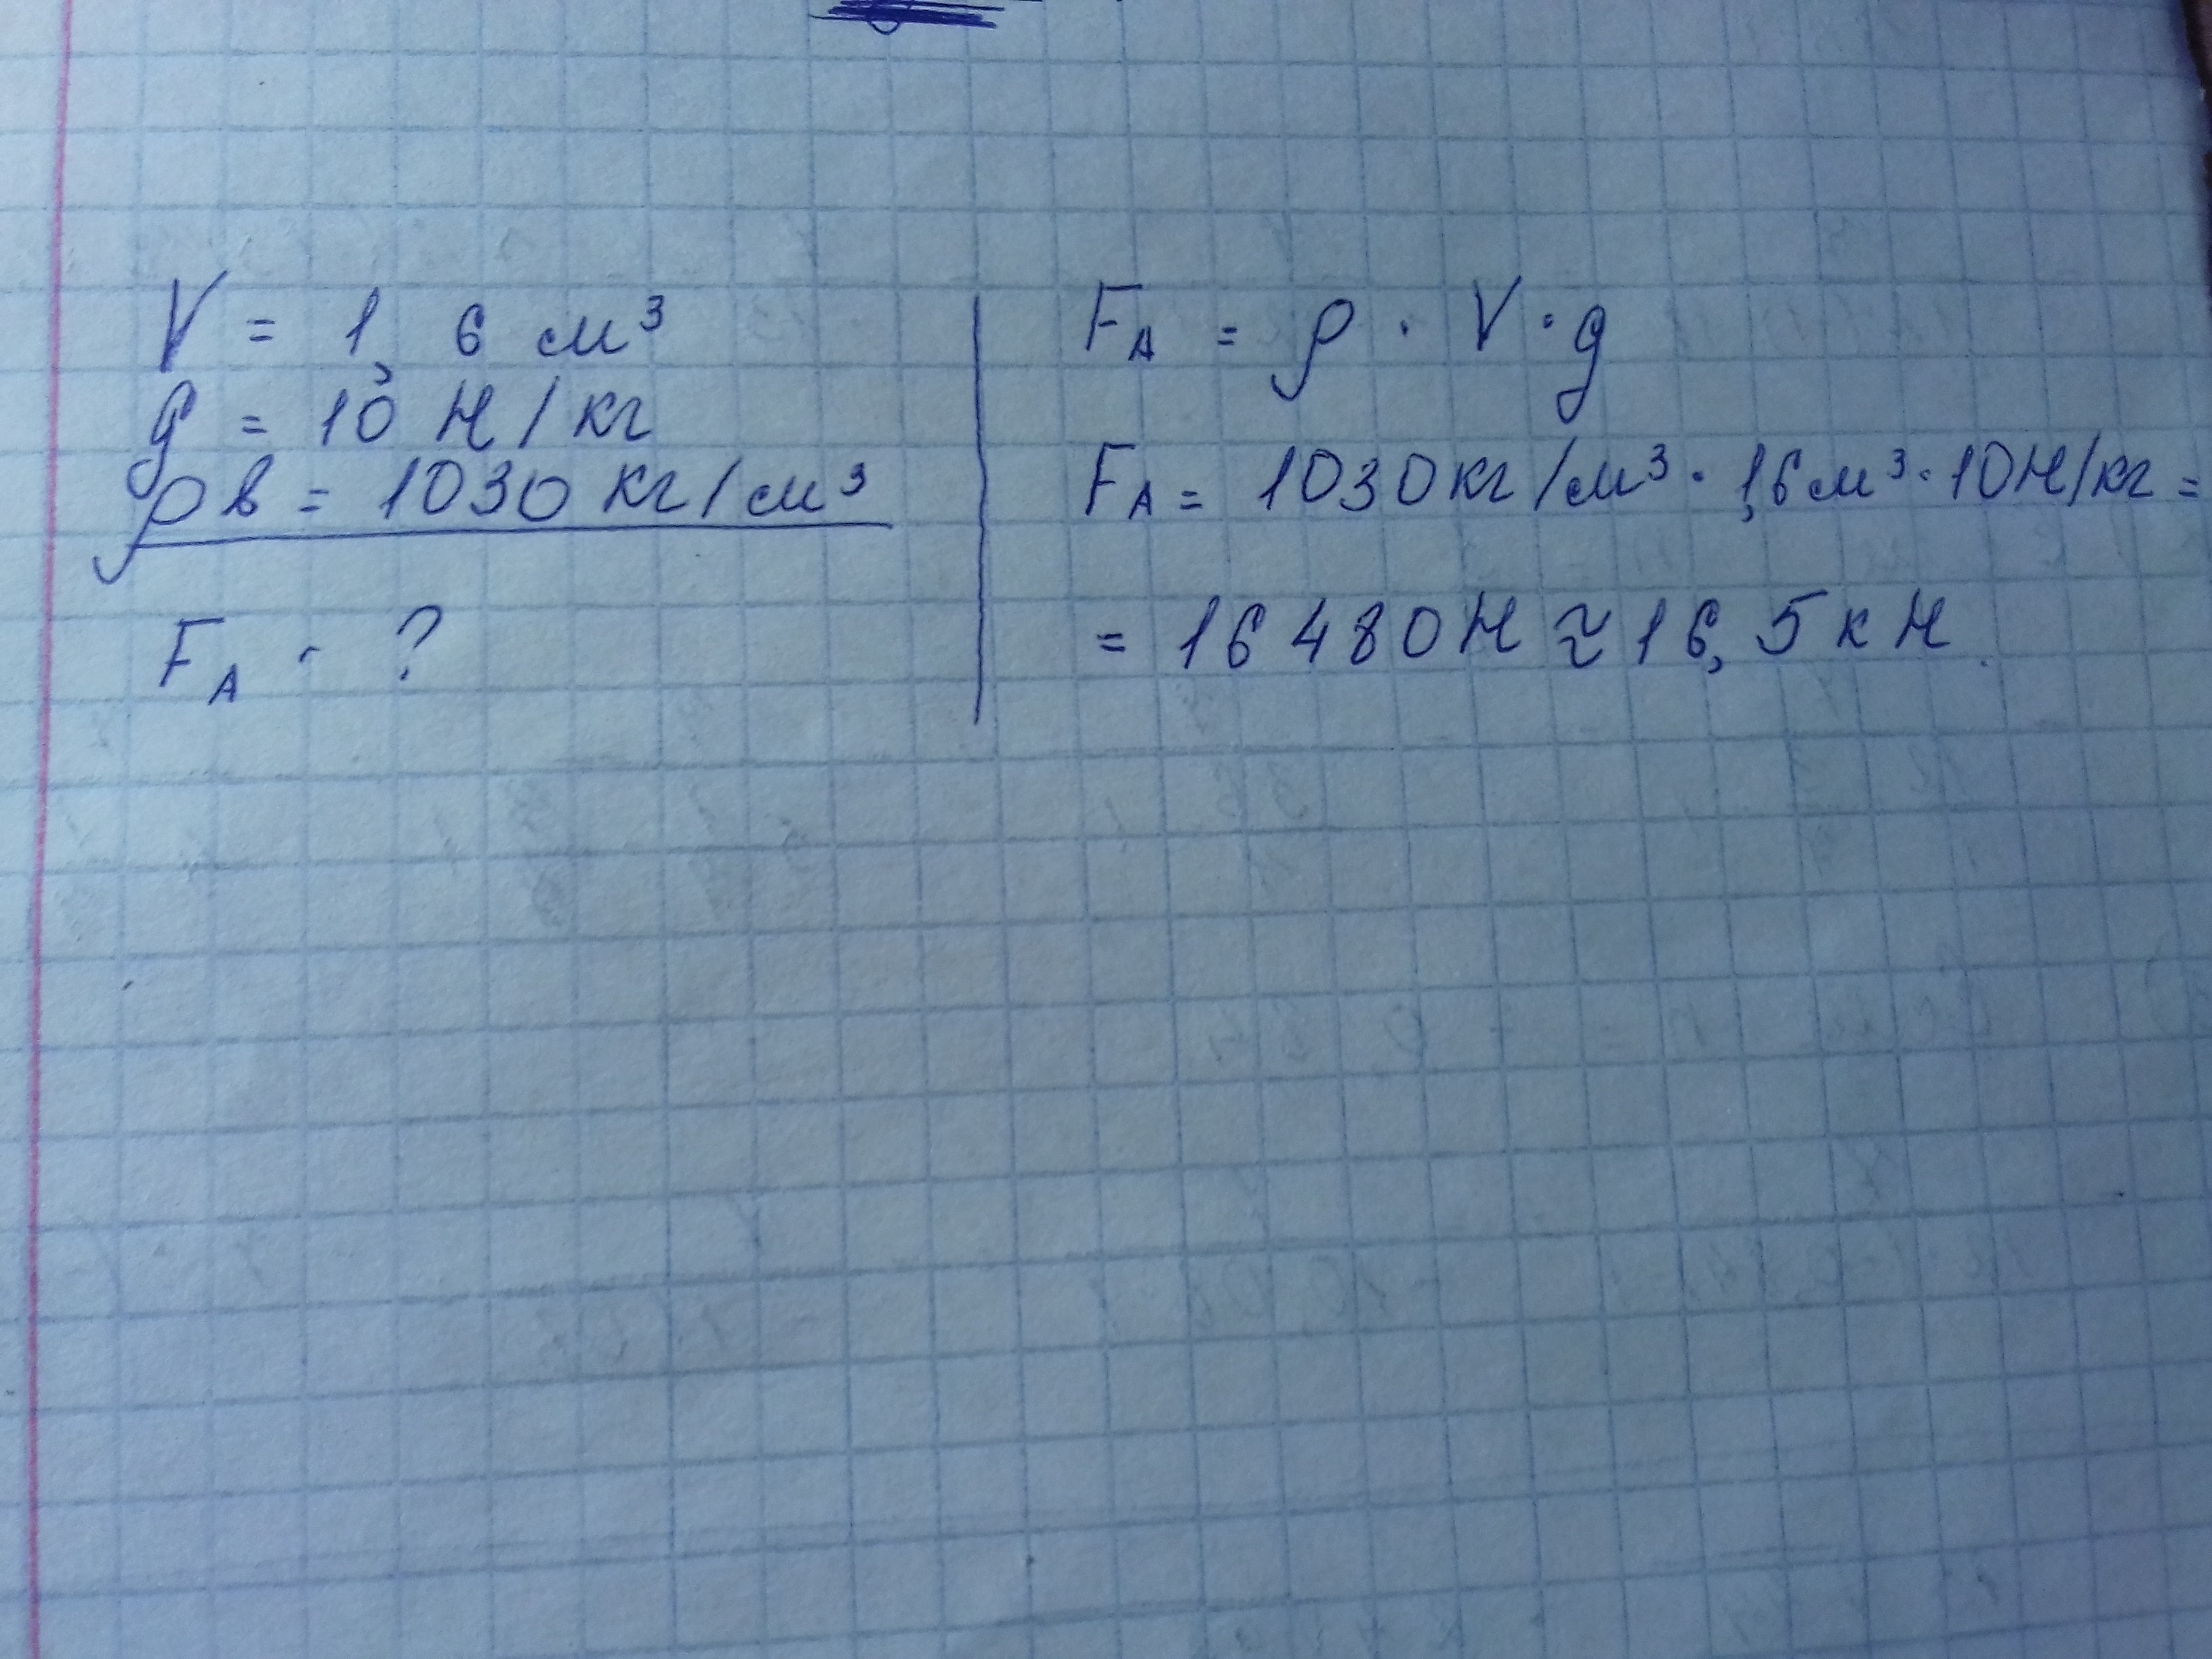 V = 1,6 м³
g = 10 Н/кг
ρв = 1030 кг/м³
Fᴀ - ?
Fᴀ = ρ · V · g
Fᴀ = 1030 кг/м³ · 1,6 м³ · 10 Н/кг =
= 16480 Н ≈ 16,5 кН.